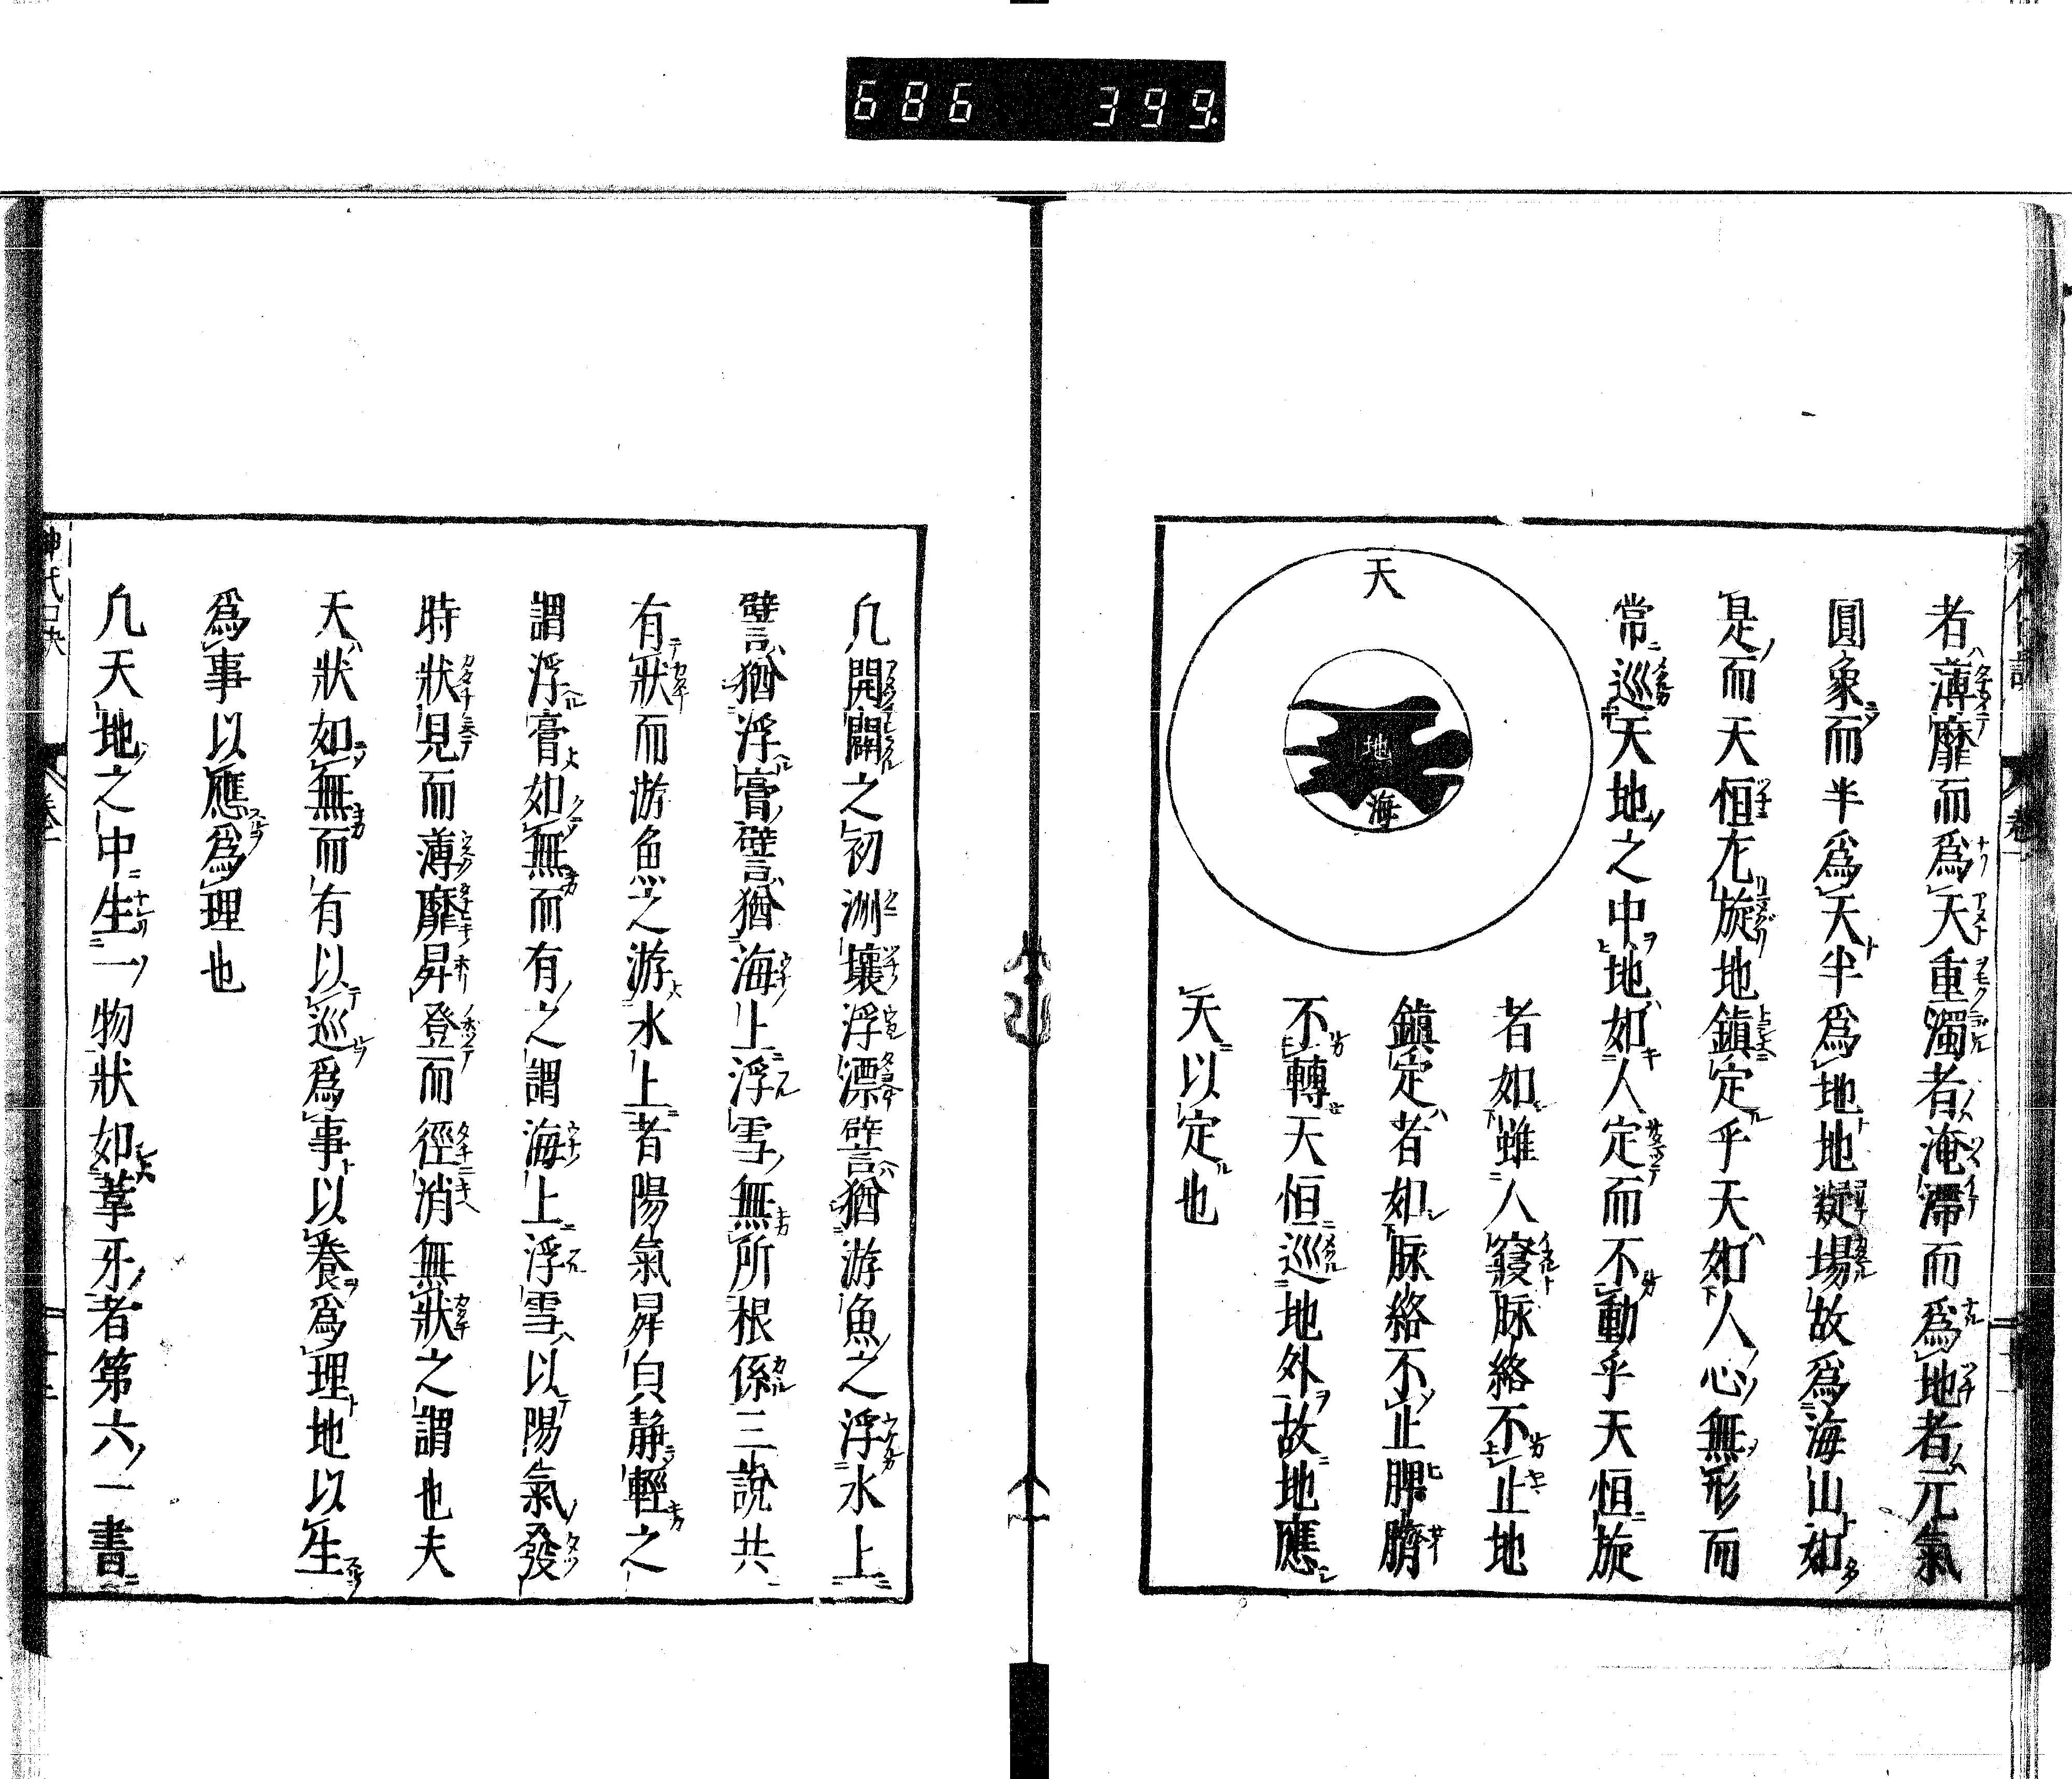 686 399
者薄靡而爲天重濁者淹滯而爲地者元氣
圓象而半爲天半爲地地凝場故爲海山如
是而天恒左旋地鎮定乎天如人心無形而
常巡天地之中地如人定而不動乎天恒旋
者如雖人寢脉絡不止地
鎮定者如脉絡不止脾臍
不轉天恒巡地外故地應
天以定也
天
地
海
凡開闢之初洲壤浮漂譬猶游魚之浮水上
譬猶浮膏譬猶海上浮雪無所根係三說共
有狀而游魚之游水上者陽氣昇白静輕之
謂浮膏如無而有之謂海上浮雪以陽氣發
時狀見而薄靡昇登而徑消無狀之謂也夫
天狀如無而有以巡爲事以養爲理地以生
爲事以應爲理也
凡天地之中生一物狀如葦牙者第六一書
神代口決